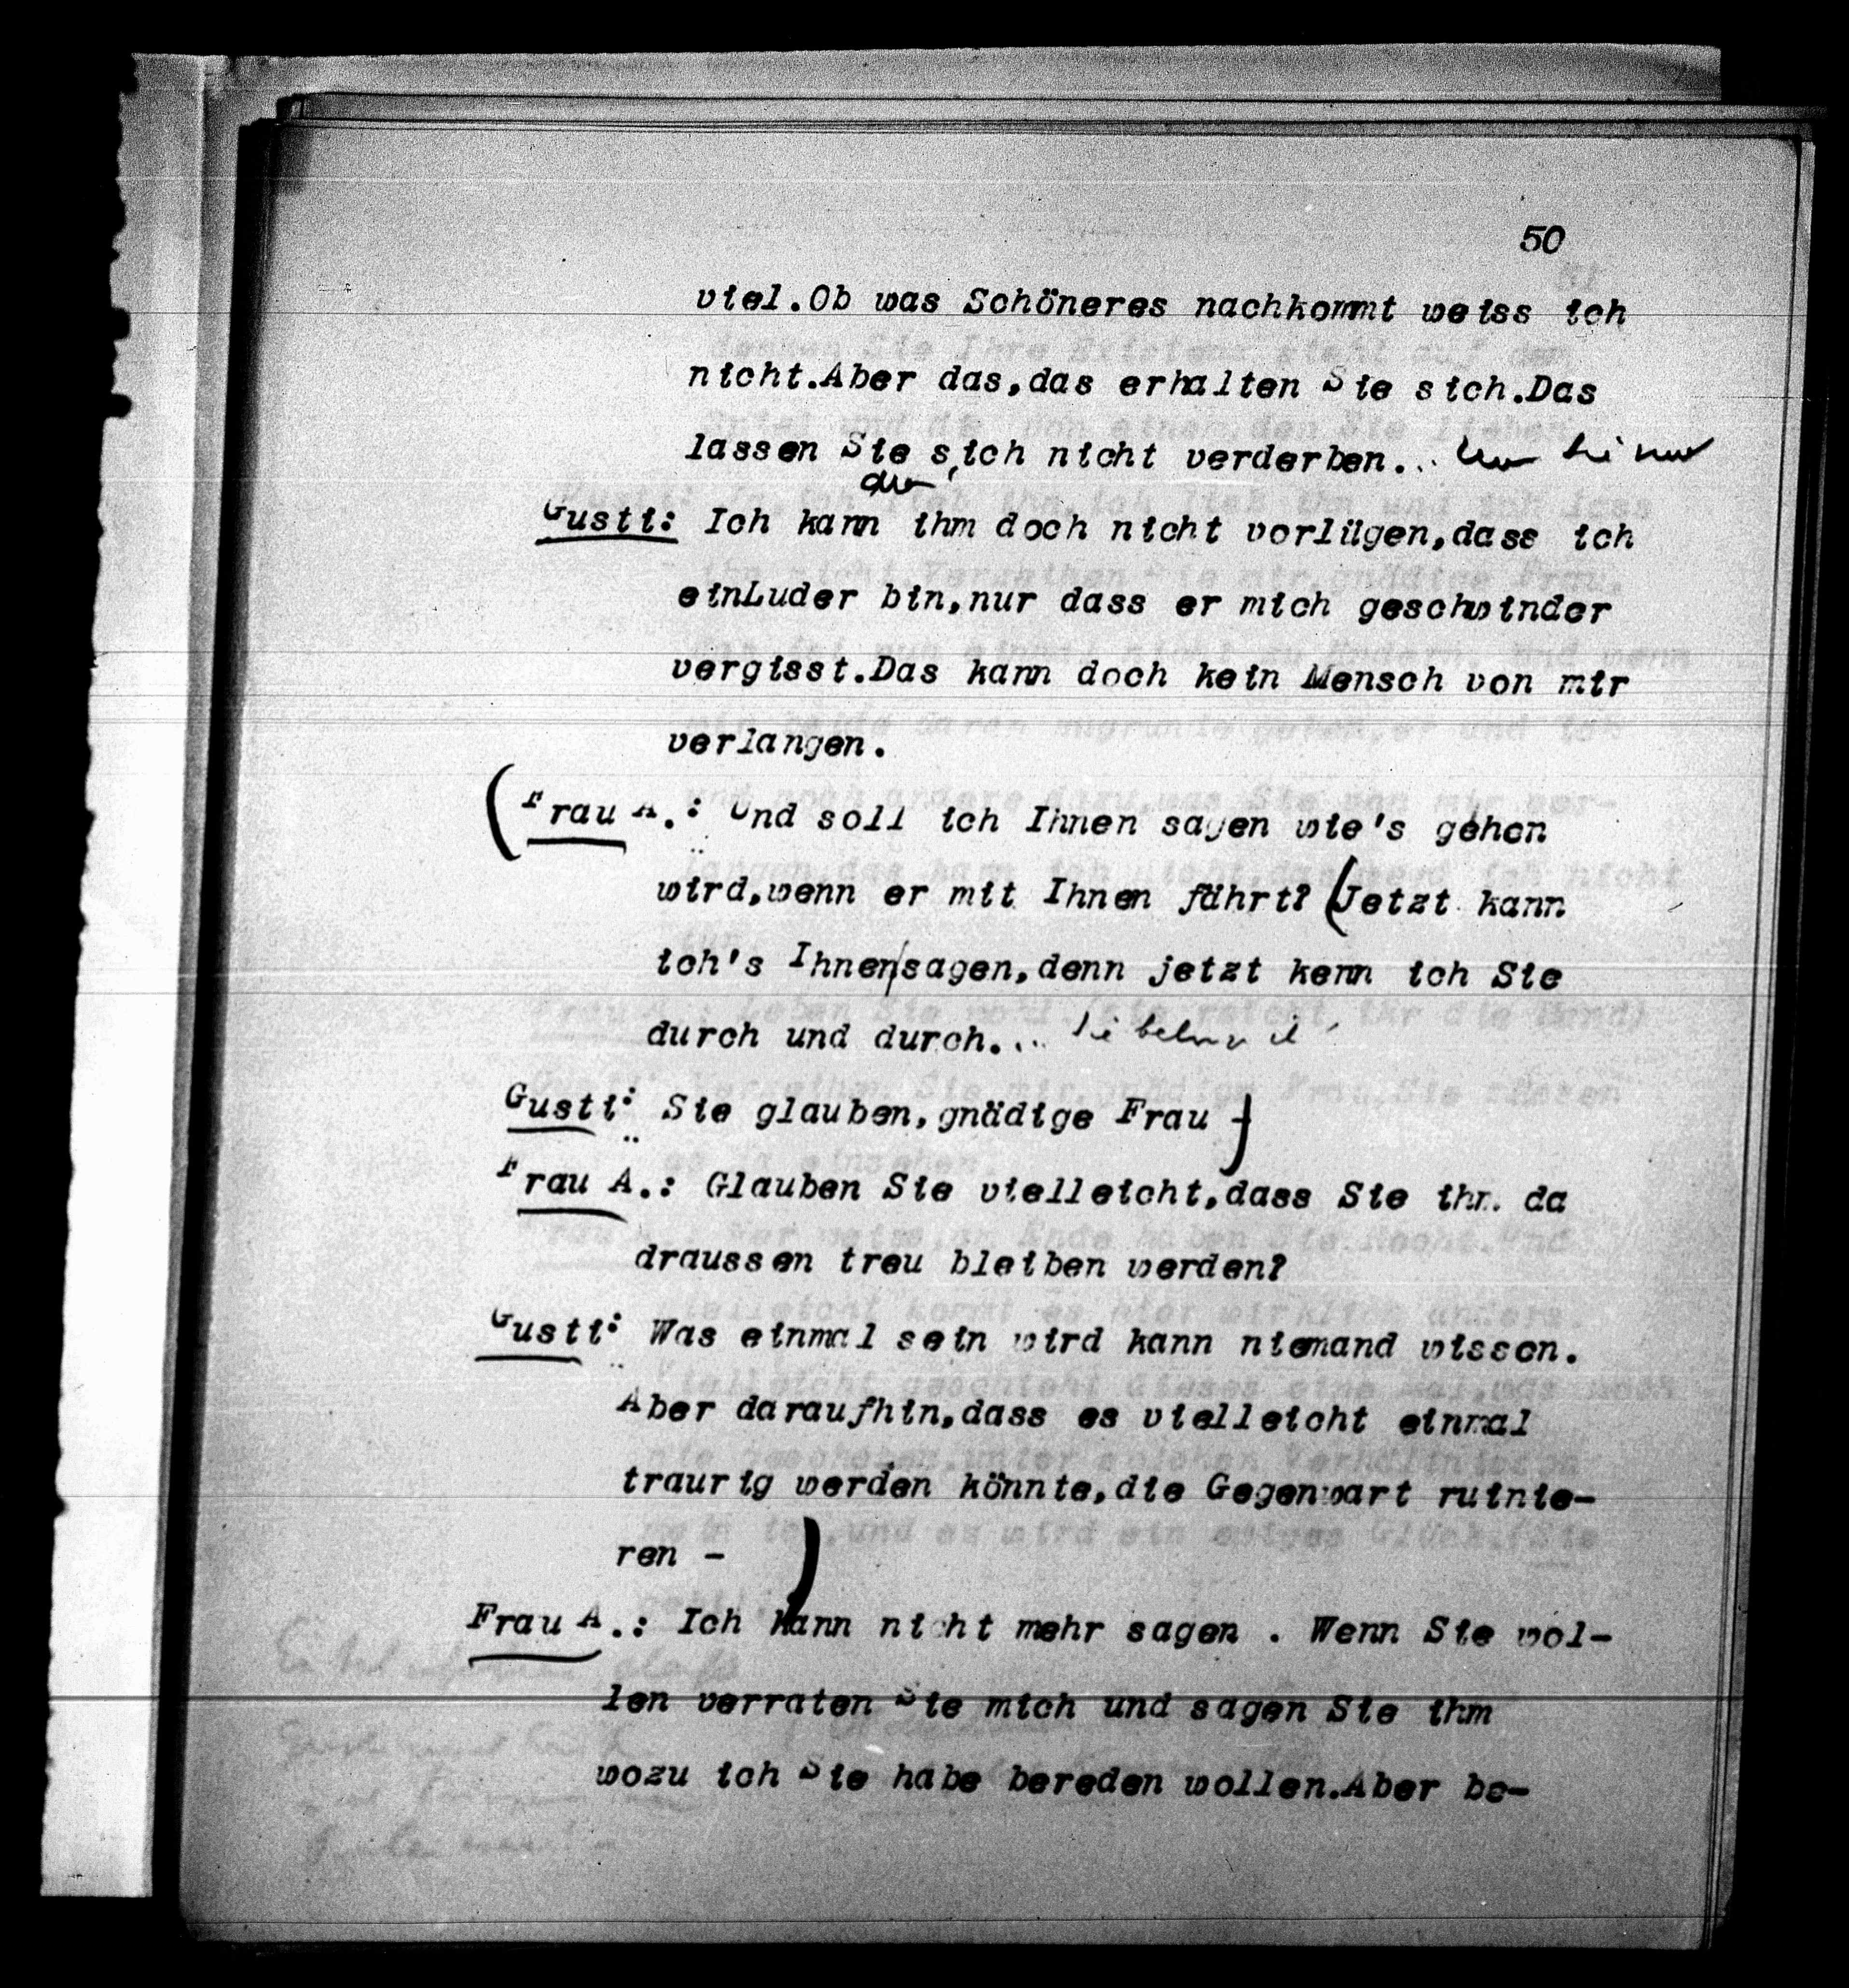 50
viel.Ob was Schöneres nachkommt weiss ich
nicht.Aber das,das erhalten Sie sich.Das
lassen Sie sich nicht verderben...
Gusti: Ich kann ihm doch nicht vorlügen,dass ich
einLuder bin,nur dass er mich geschwinder
vergisst.Das kann doch kein Mensch von mir
verlangen.
(Frau A.: Und soll ich Ihnen sagen wie's gehen
wird,wenn er mit Ihnen fährt? (Jetzt kann
ich's Ihnen/sagen,denn jetzt kenn ich Sie
durch und durch...
Gusti: Sie glauben,gnädige Frau -)
Frau A.: Glauben Sie vielleicht,dass Sie ihm da
draussen treu bleiben werden?
Gusti: Was einmal sein wird kann niemand wissen.
Aber daraufhin,dass es vielleicht einmal
traurig werden könnte,die Gegenwart ruinie-
ren - )
Frau A.: Ich kann nicht mehr sagen . Wenn Sie wol-
len verraten Sie mich und sagen Sie ihm
wozu ich Sie habe bereden wollen.Aber be-